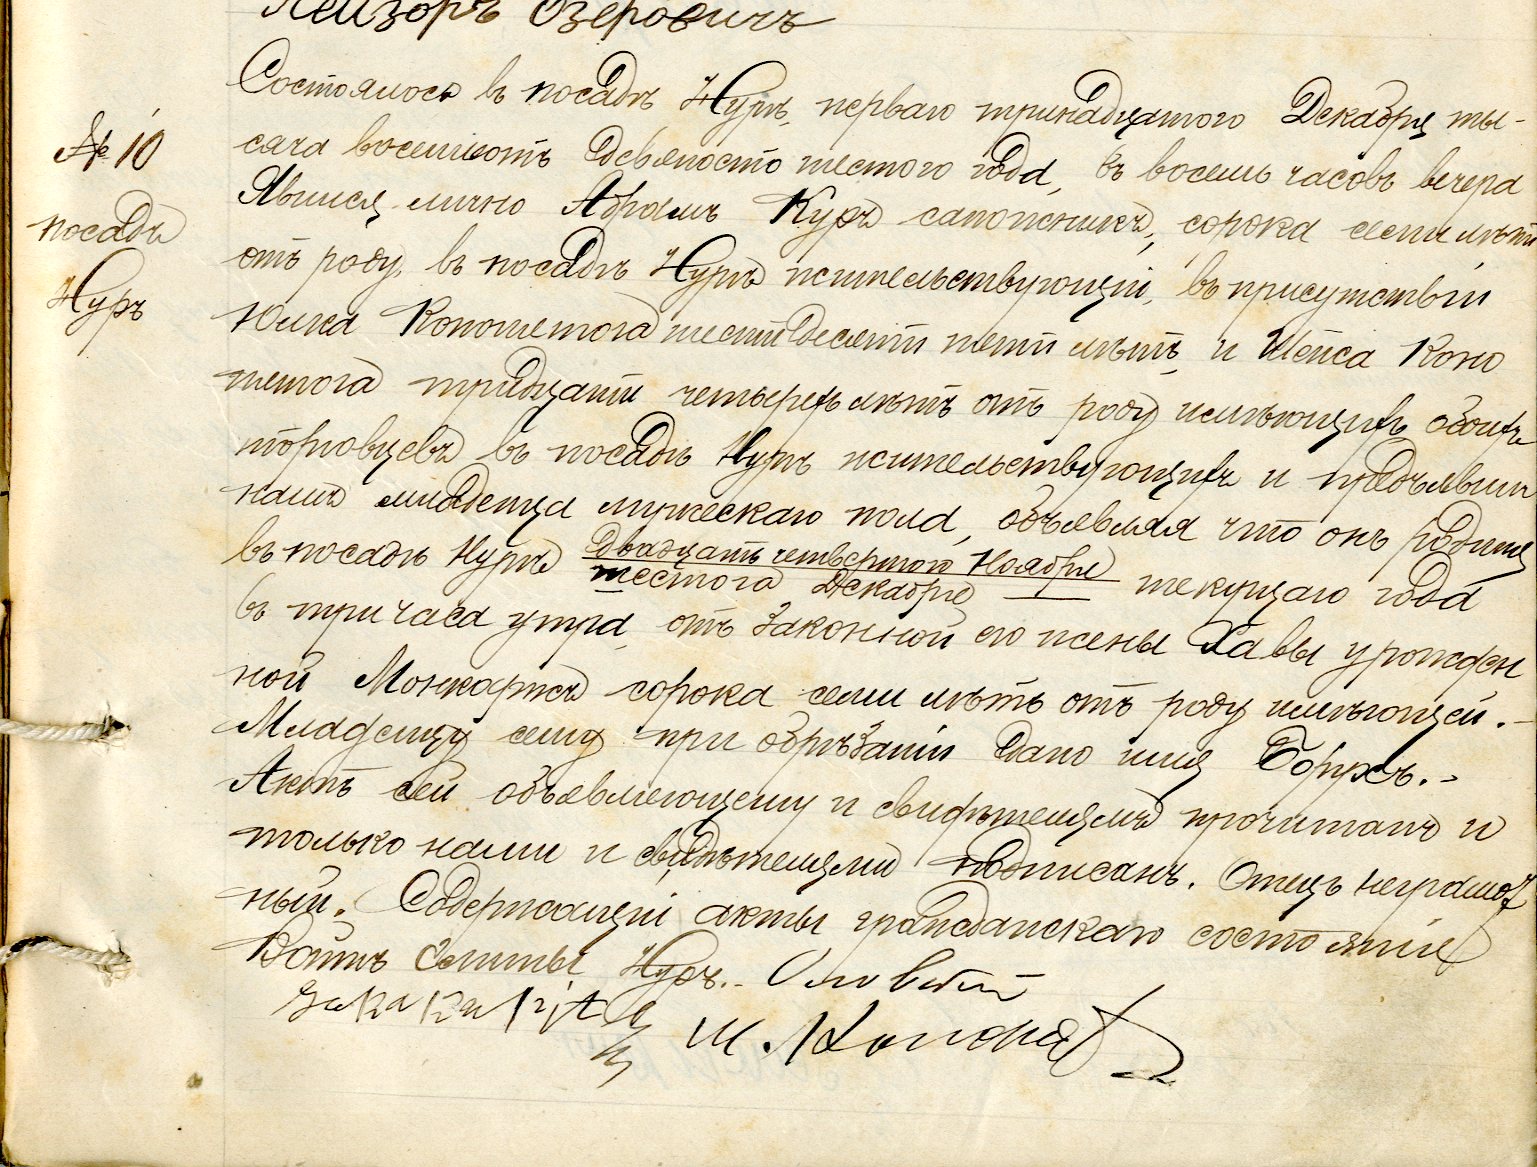 Лейзоръ Озеровичъ
№ 10
посадъ
Нуръ
Состоялось въ посадѣ Нурѣ, перваго тринадцатого Декабря ты-
сяча восемьсотъ девяносто шестого года, въ восемь часовъ вечера
Явился лично Абрамъ Куръ сапожникъ, сорока семи лѣтъ
отъ роду, въ посадѣ Нурѣ жительствующій, въ присутствіи
Юдка шестидесяти пяти лѣтъ, и Шепса Коно
тридцати четырехъ лѣтъ отъ роду имѣющихъ обоихъ
торговцевъ въ посадѣ Нурѣ жительствующихъ и предъявилъ
намъ младенца мужескаго пола, объявляя что онъ родился
въ посадѣ Нурѣ двадцать четвертого Ноября
шестого Декабря текущаго года
въ три часа утра, отъ законной его жены Хавы урожден
ной Монкаржъ сорока семи лѣтъ отъ роду имѣющей.-
Младенцу сему при обрѣзаніи дано имя Борухъ.-
Актъ сей объявляющему и свидѣтелямъ прочитанъ и
только нами и свидѣтелями подписанъ. Отецъ неграмот
ный. Содержащій акты гражданскаго состоянія
Войтъ Гмины Нуръ.-
Ш.